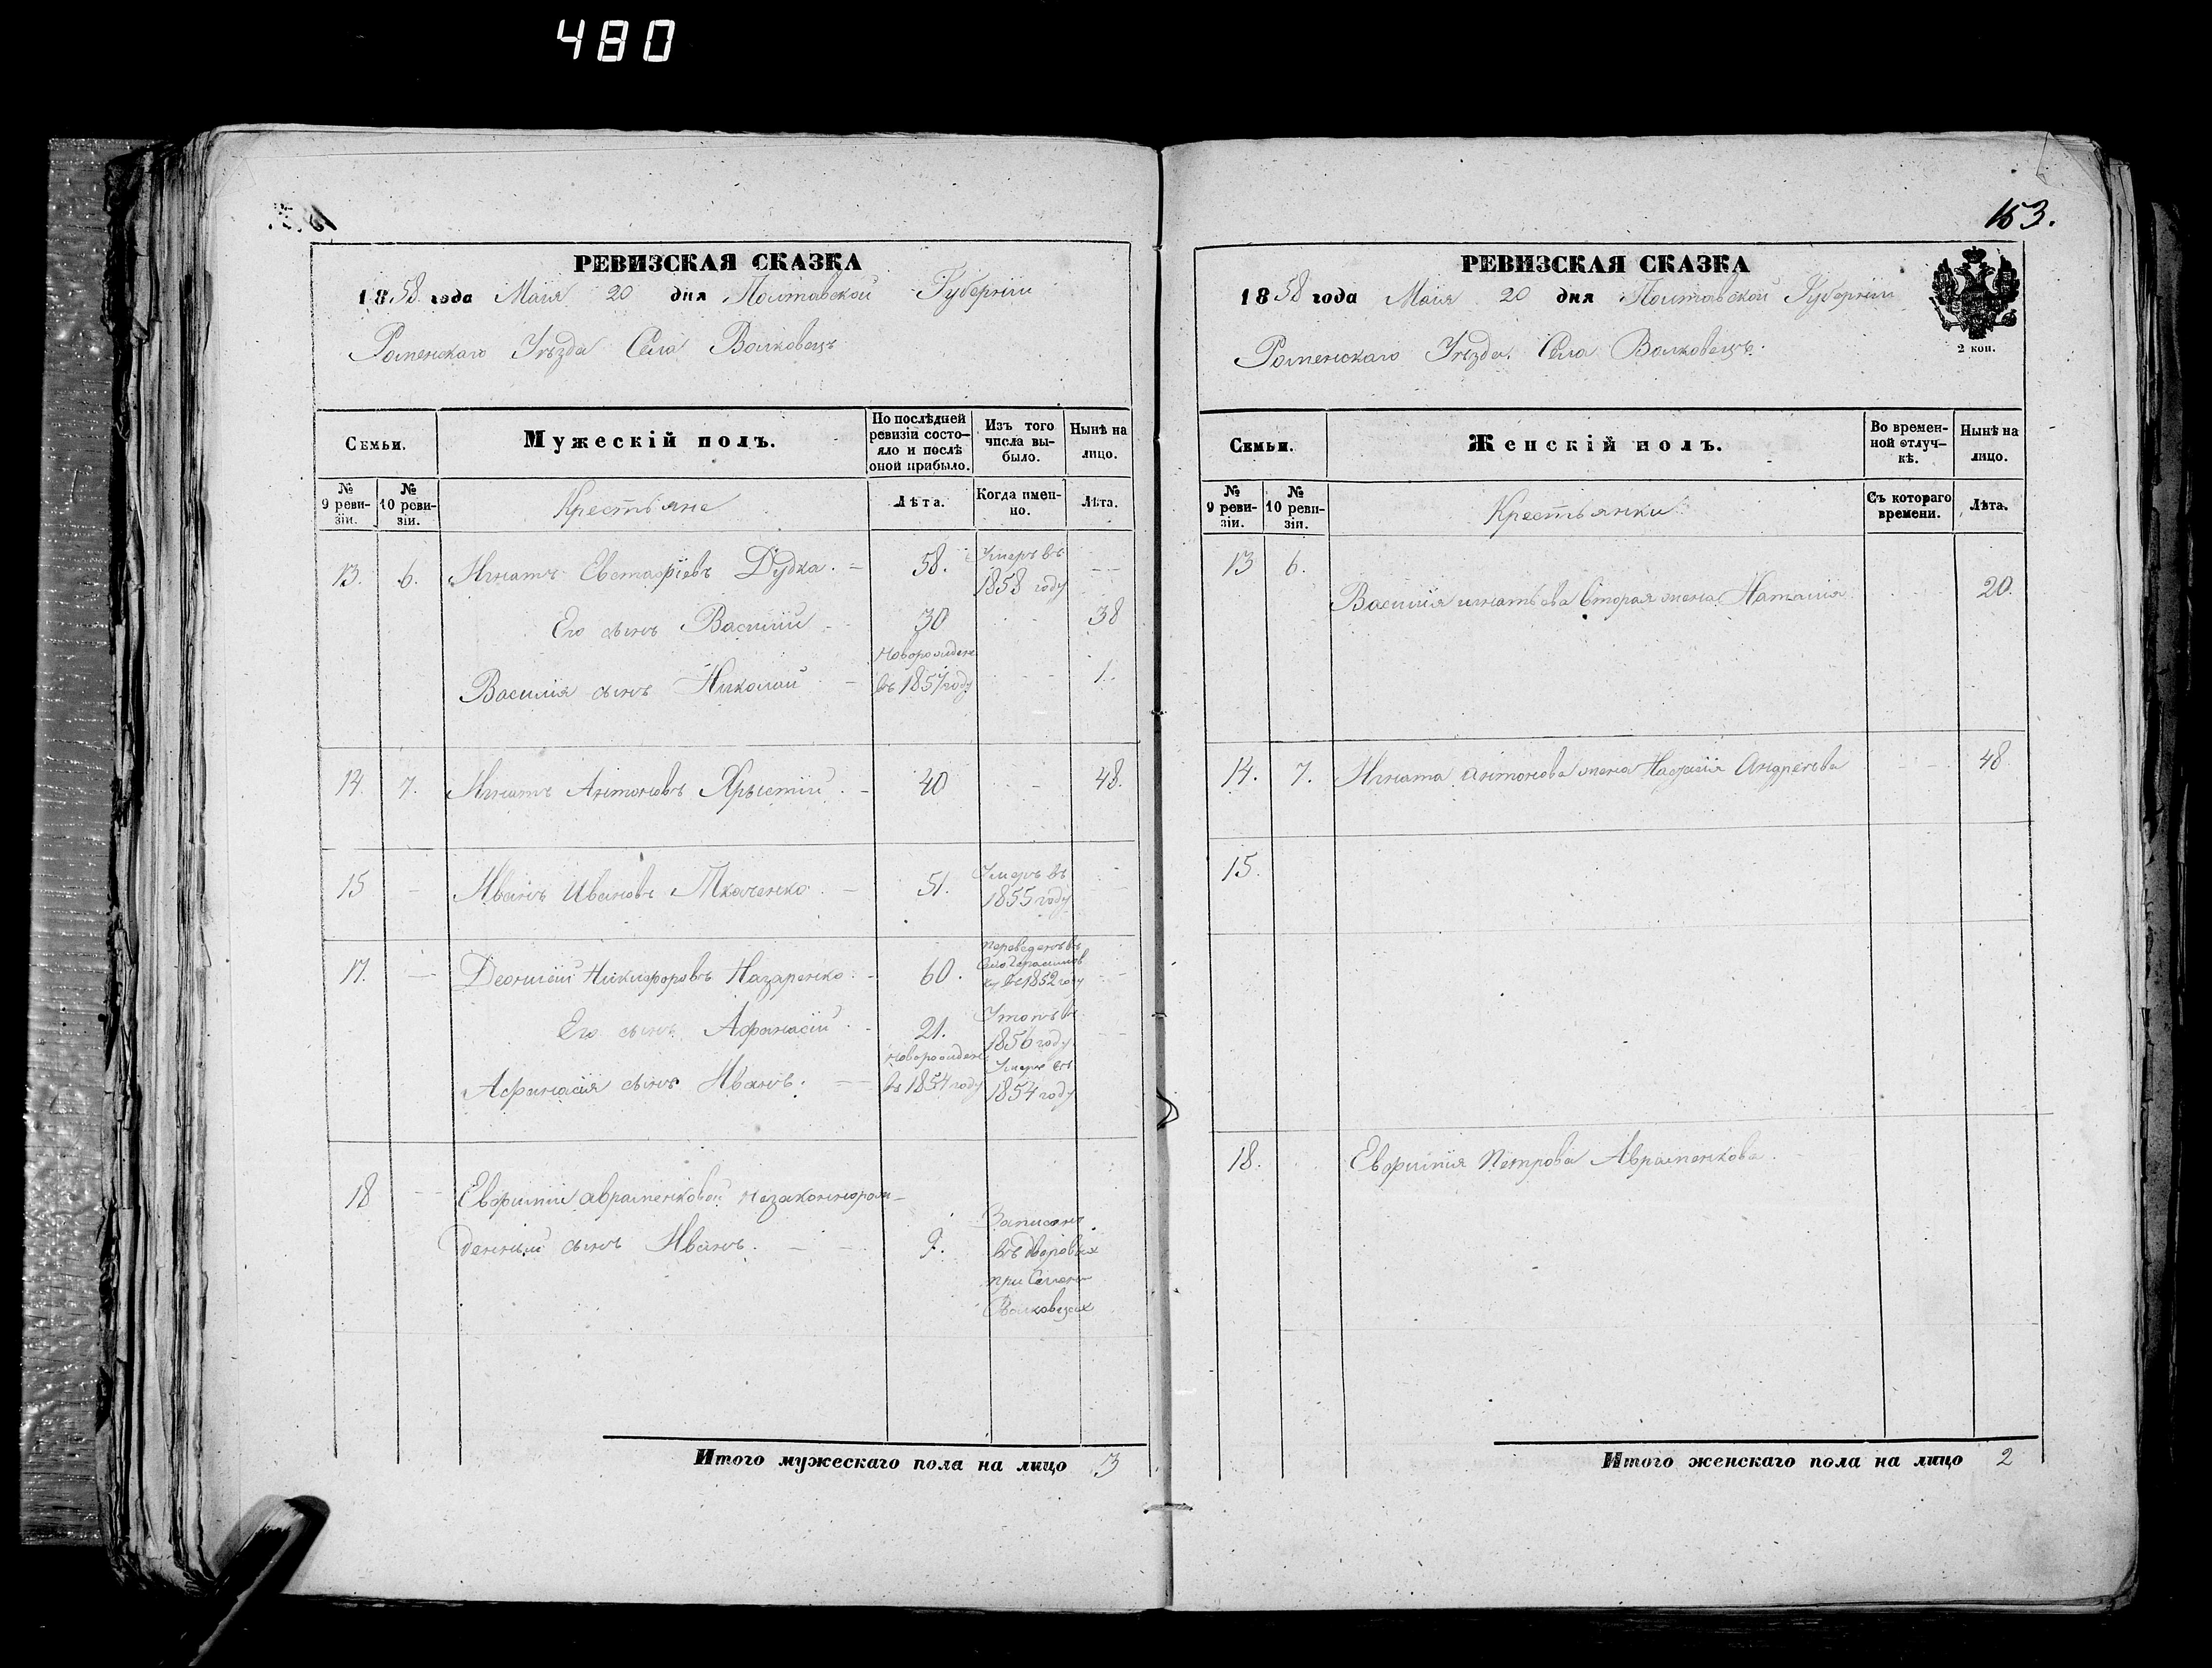 480
РЕВИЗСКАЯ СКАЗКА
1858 года Маія 20 дня Полтавской Губерніи
Роменскаго Уѣзда Села Волковецъ
Семьи.
Мужескій полъ.
По послѣдней ревизіи состо-
яло и послѣ
оной прибыло.
Изъ того
числа вы-
было.
Нынѣ на
лицо.
№
9 реви-
зіи.
№
10 реви-
зіи.
Крестьяне
Лѣта.
Когда имен-
но.
Лѣта.
13. 6. Игнатъ Евстафіевъ Дудка. 58. Умеръ въ
1858 году
Его сынъ Василій 30 38
Новорожден
Василія сынъ Николай въ 1857 году 1.
14. 7. Игнатъ Антоновъ 40 48.
15 Иванъ Ивановъ Ткаченко. 51. Умеръ въ
1855 году
17. Деонисій Никифоровъ Назаренко. 60. переведенъ въ
село
въ 1852 году
Его сынъ Афанасій. 21.
1856 году
Афанасія сынъ Иванъ. новорожден
въ 1854 году Умеръ въ
1854 году
18 Евфиміи Авраменковой незаконнорож-
денный сынъ Иванъ. 9. Записанъ
въ дворовых
при
Волковцах
Итого мужескаго пола на лицо 3
153.
РЕВИЗСКАЯ СКАЗКА
1858 года Маія 20 дня Полтавской Губерніи
Роменскаго Уѣзда Села Волковецъ.
2 коп.
Семьи.
Женскій полъ.
Во времен-
ной отлуч-
кѣ.
Нынѣ на
лицо.
№
9 реви-
зіи.
№
10 реви-
зіи.
Крестьянки
Съ котораго
времени.
Лѣта.
13 6.
Василія игнатьева вторая жена Наталія 20.
14. 7. Игната Антонова жена Андреева 48
15.
18. Евфимія Петрова Авраменкова.
Итого женскаго пола на лицо 2